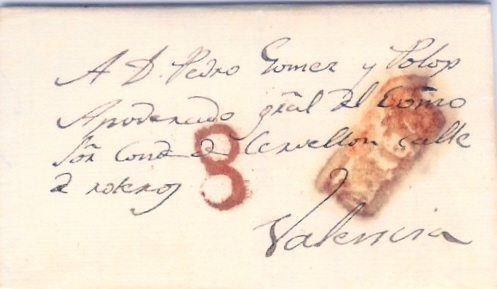 A D. Pedro Gomez y Polop
Apoderado gral del Exmo
Sor Conde de Cervellon calle
d roteros
8
Valencia